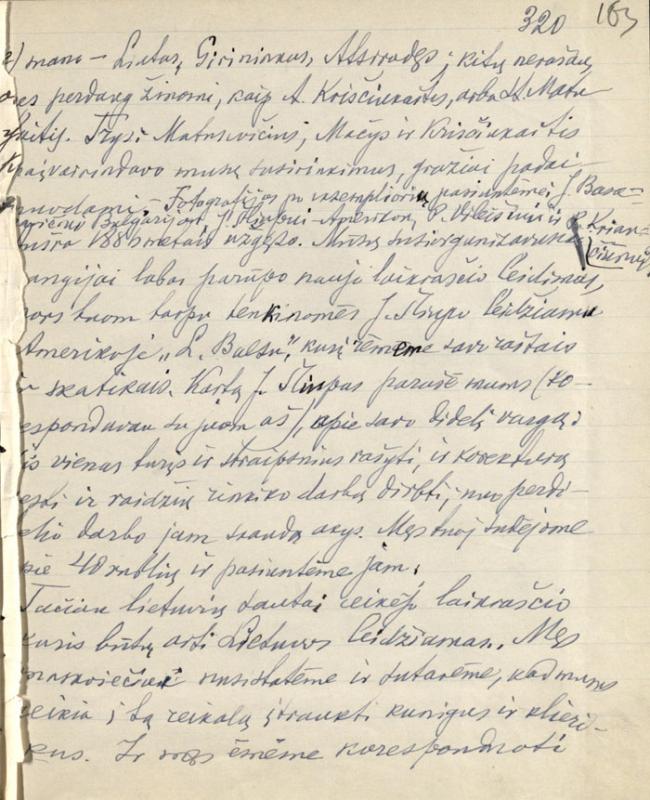 320 163
mano – Lietus, Girininkas, Atsivadęs; kitų nerašau,
nes perdaug žinomi, kaip A. Kriščiukaitis, arba St. Matu
laitis. Trysi Matusevičius, Mačys ir Kriščiukaitis
paįvairindavo musų susirinkimus, gražiai padai
nuodami. – Fotografijos po ekzempliorių pasiuntėmė, J. Basa=
navičiui Bulgarijon, J. Šliupui – Amerikon, P. Vileišiui ir P. Krian=
1885 metais užgęso. Mūsų susiorganizavusiai
čiunui
rangijai labai parūpo naujo laikraščio leidimas,
nors tuom tarpu tenkinomės J. Šliupo leidžiamu
Amerikoje „L. Balsu", kurį rėmėme savo raštais
ir skatikais. Kartą J. Šliupas parašė mums (ko–
respondavau su juom aš), apie savo didelį vargą:
jis vienas turįs ir straipsnius rašyti, ir korekturą
vesti ir raidžių rinkiko darbą dirbti; nuo perdi–
delio darbo jam skauda akys. Męs tuoj sudėjome
apie 40 rublių ir pasiuntėme jam.
Tačiau lietuvių tautai reikėjo laikraščio
kuris būtų arti Lietuvos leidžiamas. Męs
maskviečiai nusistatėme ir sutarėme, kad mums
reikia į šą reikalą įtraukti kunigus ir klieri–
kus. Ir męs ėmėme korespondnoti